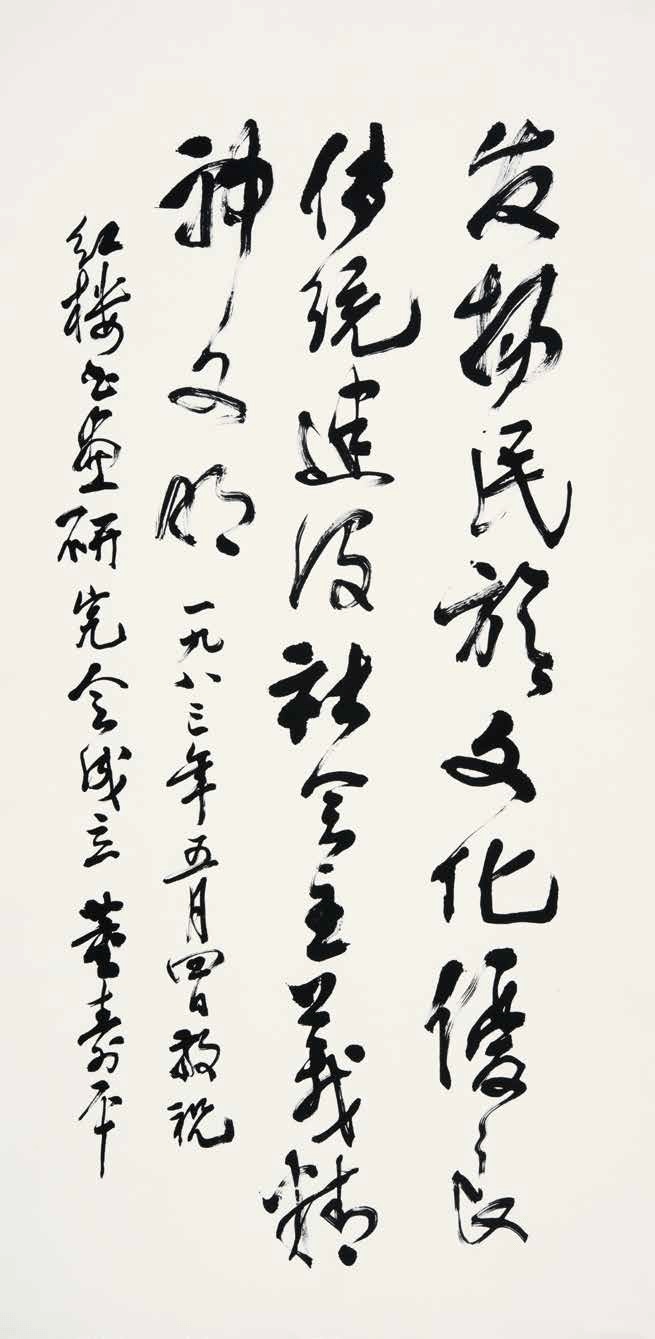 发扬民族文化优良
传统建设社会主义精
神文明
一九八三年五月四日敬祝
红楼书画研究会成立 董寿平